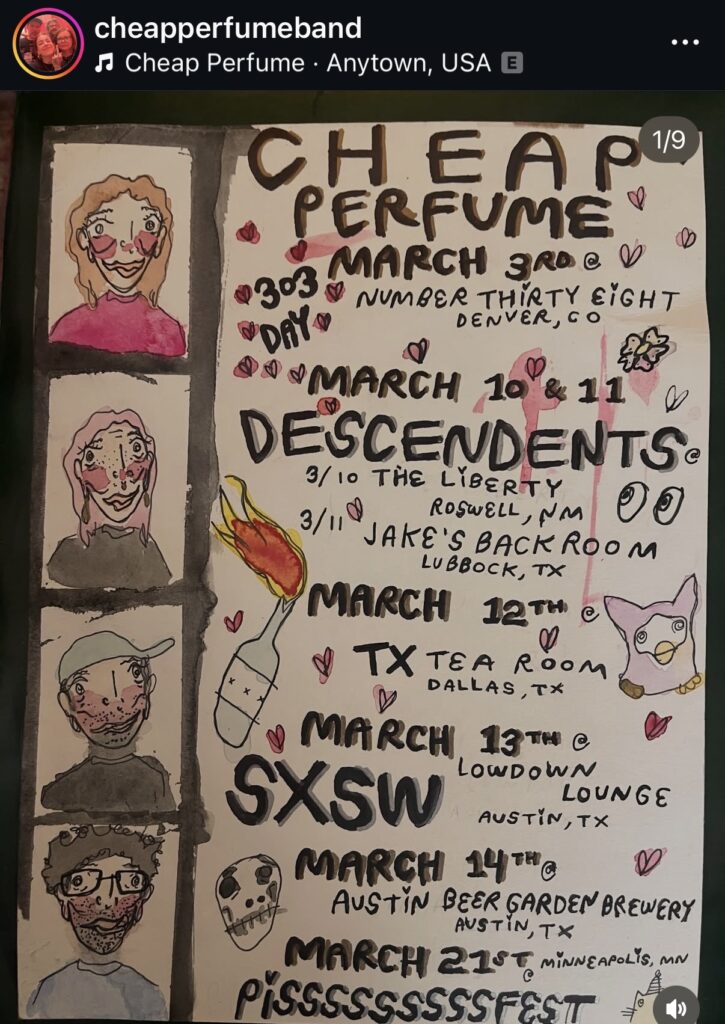 cheapperfumeband
Cheap Perfume · Anytown, USA E
1/9
CHEAP
PERFUME
MARCH 3RD @
303
DAY
NUMBER THIRTY EIGHT
DENVER, CO
MARCH 10 & 11
DESCENDENTS @
3/10 THE LIBERTY
ROSWELL, NM
3/11 JAKE'S BACK ROOM
LUBBOCK, TX
MARCH 12TH @
TX TEA ROOM
DALLAS, TX
MARCH 13TH @
SXSW LOWDOWN
LOUNGE
AUSTIN, TX
MARCH 14TH @
AUSTIN BEER GARDEN BREWERY
AUSTIN, TX
MARCH 21ST @ MINNEAPOLIS, MN
PISSSSSSSSSSFEST